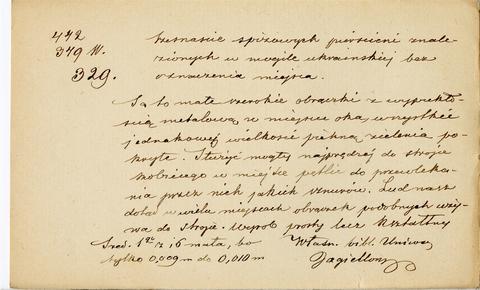 442
379 W.
329.
Szesnaście spiżowych pierścieni znale-
zionych w mogile ukraińskiej bez
oznaczenia miejsca.
Są to małe szerokie obrączki z wypukło-
ścią metalową w miejscu oka, wszystkie
jednakowej wielkości piękną zielenią po-
kryte. Służyć mogły najprędzej do stroju
kobiecego w miejsce pętlic do przewleka-
nia przez nich jakich sznurów. Lud nasz
dotąd w wielu miejscach obrączek podobnych uży-
wa do stroju. Wyrób prosty lecz kształtny
Śred. 1go z 16 mała, bo
tylko 0,009 m do 0,010 m
Własn. bibl. Uniwer.
Jagielloń.